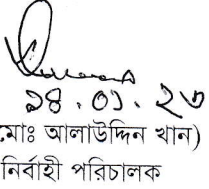 ১৪.০১.২৩
মোঃ আলাউদ্দিন খান)
নির্বাহী পরিচালক